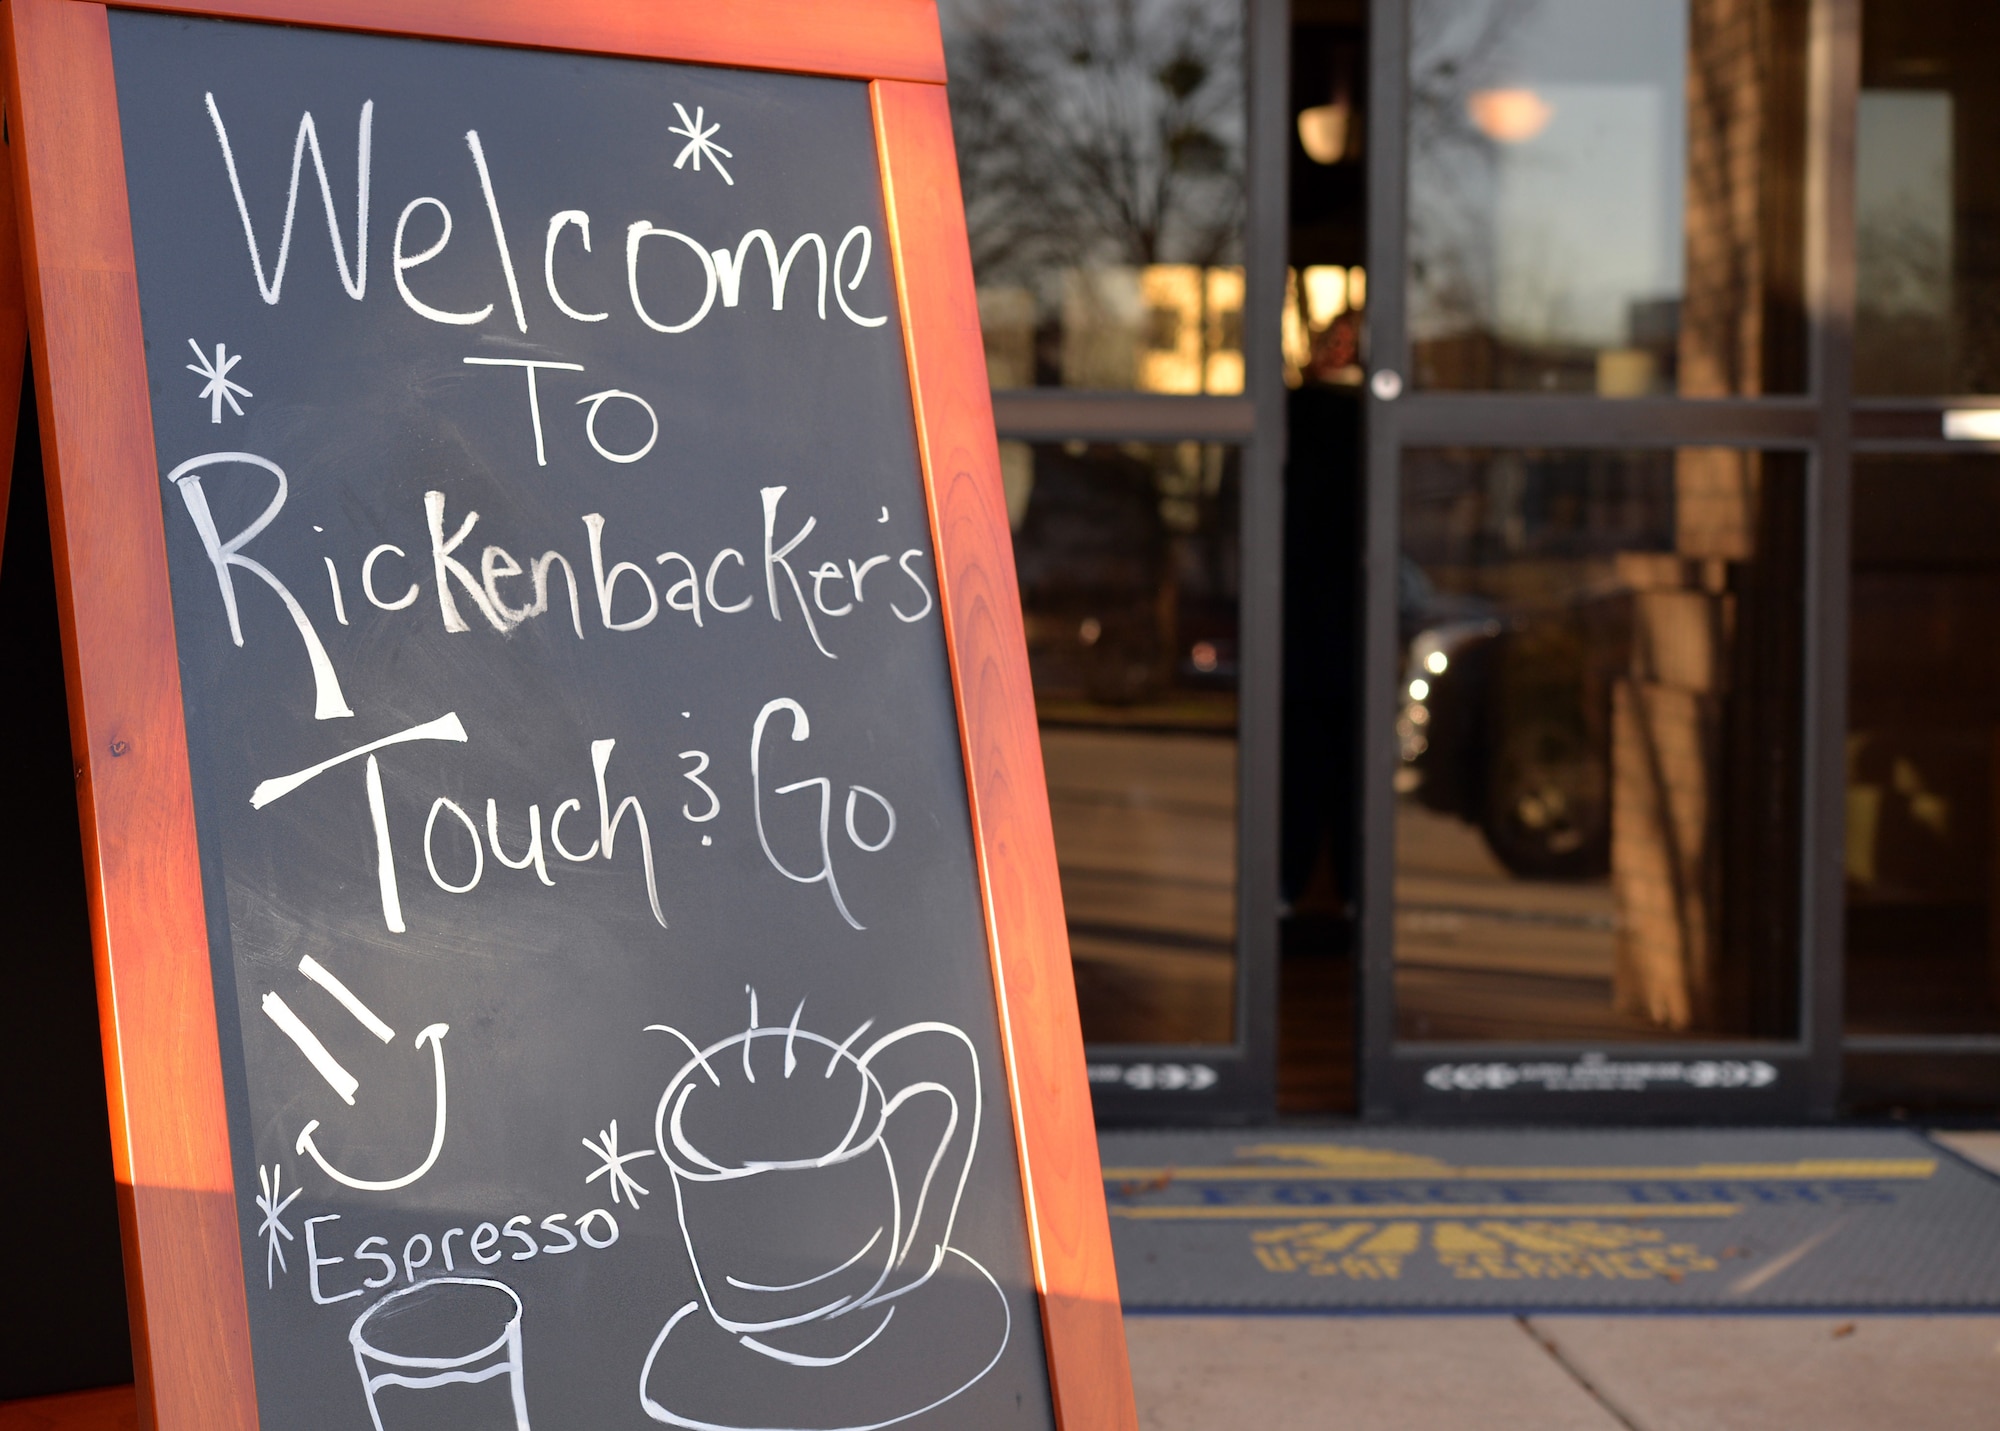 Welcome
To
Rickenbacker's
Touch & Go
Espresso
FORCE INNS
USAF SERVICES